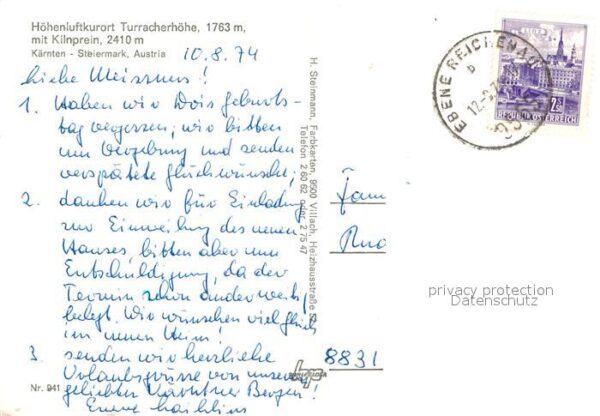 Höhenluftkurort Turracherhöhe, 1763 m,
mit Kilnprein, 2410 m
Kärnten - Steiermark, Austria
10.8.74
Liebe Meissners!
1. Haben wir Doris Geburts-
tag vergessen, wir bitten
um Vergebung und senden
verspätete Glückwünsche;
2. danken wir für Einladung
zur Einweihung des neuen
Hauses, bitten aber um
Entschuldigung, da der
Termin schon anderweitig
belegt. Wir wünschen viel Glück
im neuen Heim!
3. senden wir herzliche
Urlaubsgrüsse von unseren
geliebten Kärntner Bergen!
Eure
Nr. 941
H. Steinmann, Farbkarten, 9500 Villach, Heizhausstraße
Telefon 2 60 62 oder 2 75 47
EBENE REICHENAU
REPUBLIK ÖSTERREICH
Fam
8831
privacy protection
Datenschutz